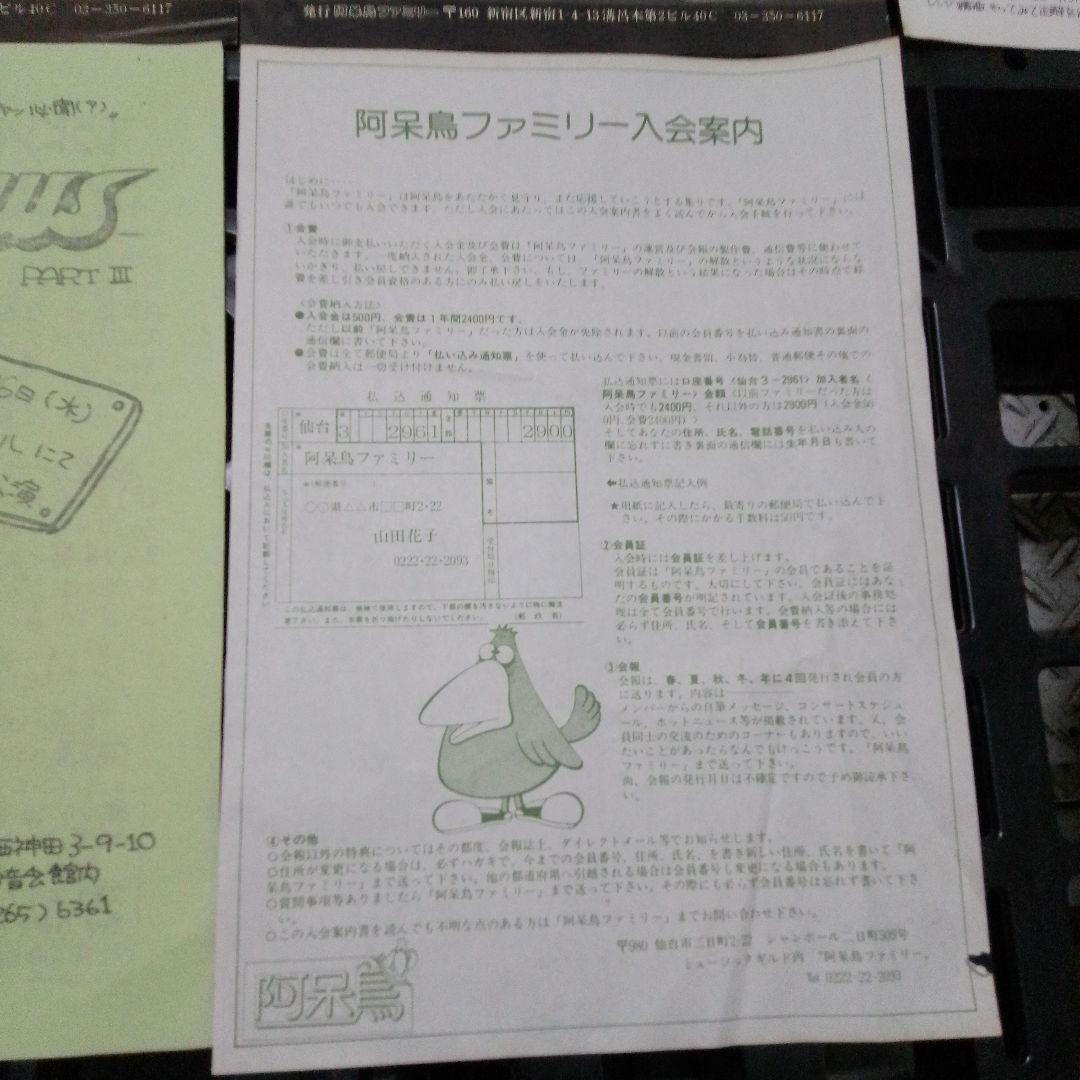 ビル40C 03-350-6117
発行 阿呆鳥ファミリー 〒160 新宿区新宿1-4-13 溝呂木第2ビル40C 03-350-6117
PART III
日(水)
ルにて
演
西神田3-9-10
音会館内
265)6361
阿呆鳥ファミリー入会案内
はじめに……
「阿呆鳥ファミリー」は阿呆鳥をあたたかく見守り、また応援していこうとする集りです。「阿呆鳥ファミリー」には
誰でもいつでも入会できます。ただし入会にあたってはこの入会案内書をよく読んでから入会手続を行って下さい。
①会費
入会時に御支払いいただく入会金及び会費は「阿呆鳥ファミリー」の運営及び会報の製作費、通信費等に使わせて
いただきます。一度納入された入会金、会費については、「阿呆鳥ファミリー」の解散というような状況にならな
いかぎり、払い戻しできません。御了承下さい。もし、ファミリーの解散という結果になった場合はその時点で経
費を差し引き会員資格のある方にのみ払い戻しをいたします。
〈会費納入方法〉
●入会金は500円、会費は1年間2400円です。
ただし以前「阿呆鳥ファミリー」だった方は入会金が免除されます。以前の会員番号を払い込み通知書の裏面の
通信欄に書いて下さい。
●会費は全て郵便局より「払い込み通知票」を使って払い込んで下さい。現金書留、小為替、普通郵便その他での
会費納入は一切受け付けません。
払込通知票
仙台 3 2961 2900
阿呆鳥ファミリー
○○県△△市□□町2・22
山田花子
0222・22・2093
この払込通知票は、機械で使用しますので、下部の欄を汚さないように特に御注
意下さい。また、本票を折り曲げたりしないでください。 (郵政省)
払込通知票には口座番号〈仙台3-2961〉加入者名〈
阿呆鳥ファミリー〉金額〈以前ファミリーだった方は
入会時でも2400円、それ以外の方は2900円(入会金50
0円、会費2400円)〉
そしてあなたの住所、氏名、電話番号を払い込み人の
欄に忘れずに書き裏面の通信欄には生年月日も書いて
下さい。
←払込通知票記入例
★用紙に記入したら、最寄りの郵便局で払い込んで下
さい。その際にかかる手数料は50円です。
②会員証
入会時には会員証を差し上げます。
会員証は「阿呆鳥ファミリー」の会員であることを証
明するものです。大切にして下さい。会員証にはあな
たの会員番号が明記されています。入会以後の事務処
理は全て会員番号で行います。会費納入等の場合には
必らず住所、氏名、そして会員番号を書き添えて下さ
い。
③会報
会報は、春、夏、秋、冬、年に4回発行され会員の方
に送ります。内容は
メンバーからの自筆メッセージ、コンサートスケジュ
ール、ホットニュース等が掲載されています。又、会
員同士の交流のためのコーナーもありますので、いい
たいことがあったらなんでもけっこうです。「阿呆鳥
ファミリー」まで送って下さい。
尚、会報の発行月日は不確定ですので予め御諒承下さ
い。
④その他
○会報以外の特典についてはその都度、会報誌上、ダイレクトメール等でお知らせします。
○住所が変更になる場合は、必ずハガキで、今までの会員番号、住所、氏名、を書き新しい住所、氏名を書いて「阿
呆鳥ファミリー」まで送って下さい。他の都道府県へ引越される場合は会員番号も変更になる場合もあります。
○質問事項等ありましたら「阿呆鳥ファミリー」まで送って下さい。その際にも必らず会員番号は忘れず書いて下さ
い。
○この入会案内書を読んでも不明な点のある方は「阿呆鳥ファミリー」までお問い合わせ下さい。
〒980 仙台市二日町2-22 シャンボール二日町309号
ミュージックギルド内 「阿呆鳥ファミリー」
Tel 0222-22-2093
阿呆鳥